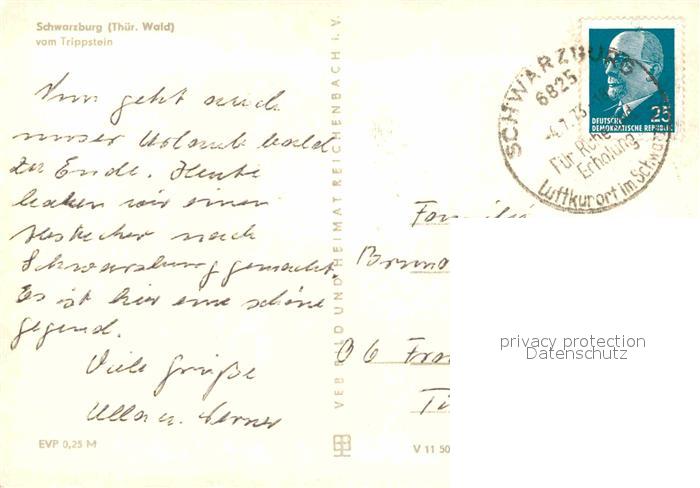 Schwarzburg (Thür. Wald)
vom Trippstein
Nun geht auch
unser Urlaub bald
zu Ende. Heute
haben wir einen
Abstecher nach
Schwarzburg gemacht.
Es ist hier eine schöne
gegend.
Viele Grüße
Ulla u. Werner
EVP 0,25 M
VEB BILD UND HEIMAT REICHENBACH I. V.
V 11 50
SCHWARZBURG
6825
-4.7.73
Für Ruhe
Erholung
Luftkurort im Schwarz
25
DEUTSCHE
DEMOKRATISCHE REPUBLIK
Familie
Bruno
06 Fra
privacy protection
Datenschutz